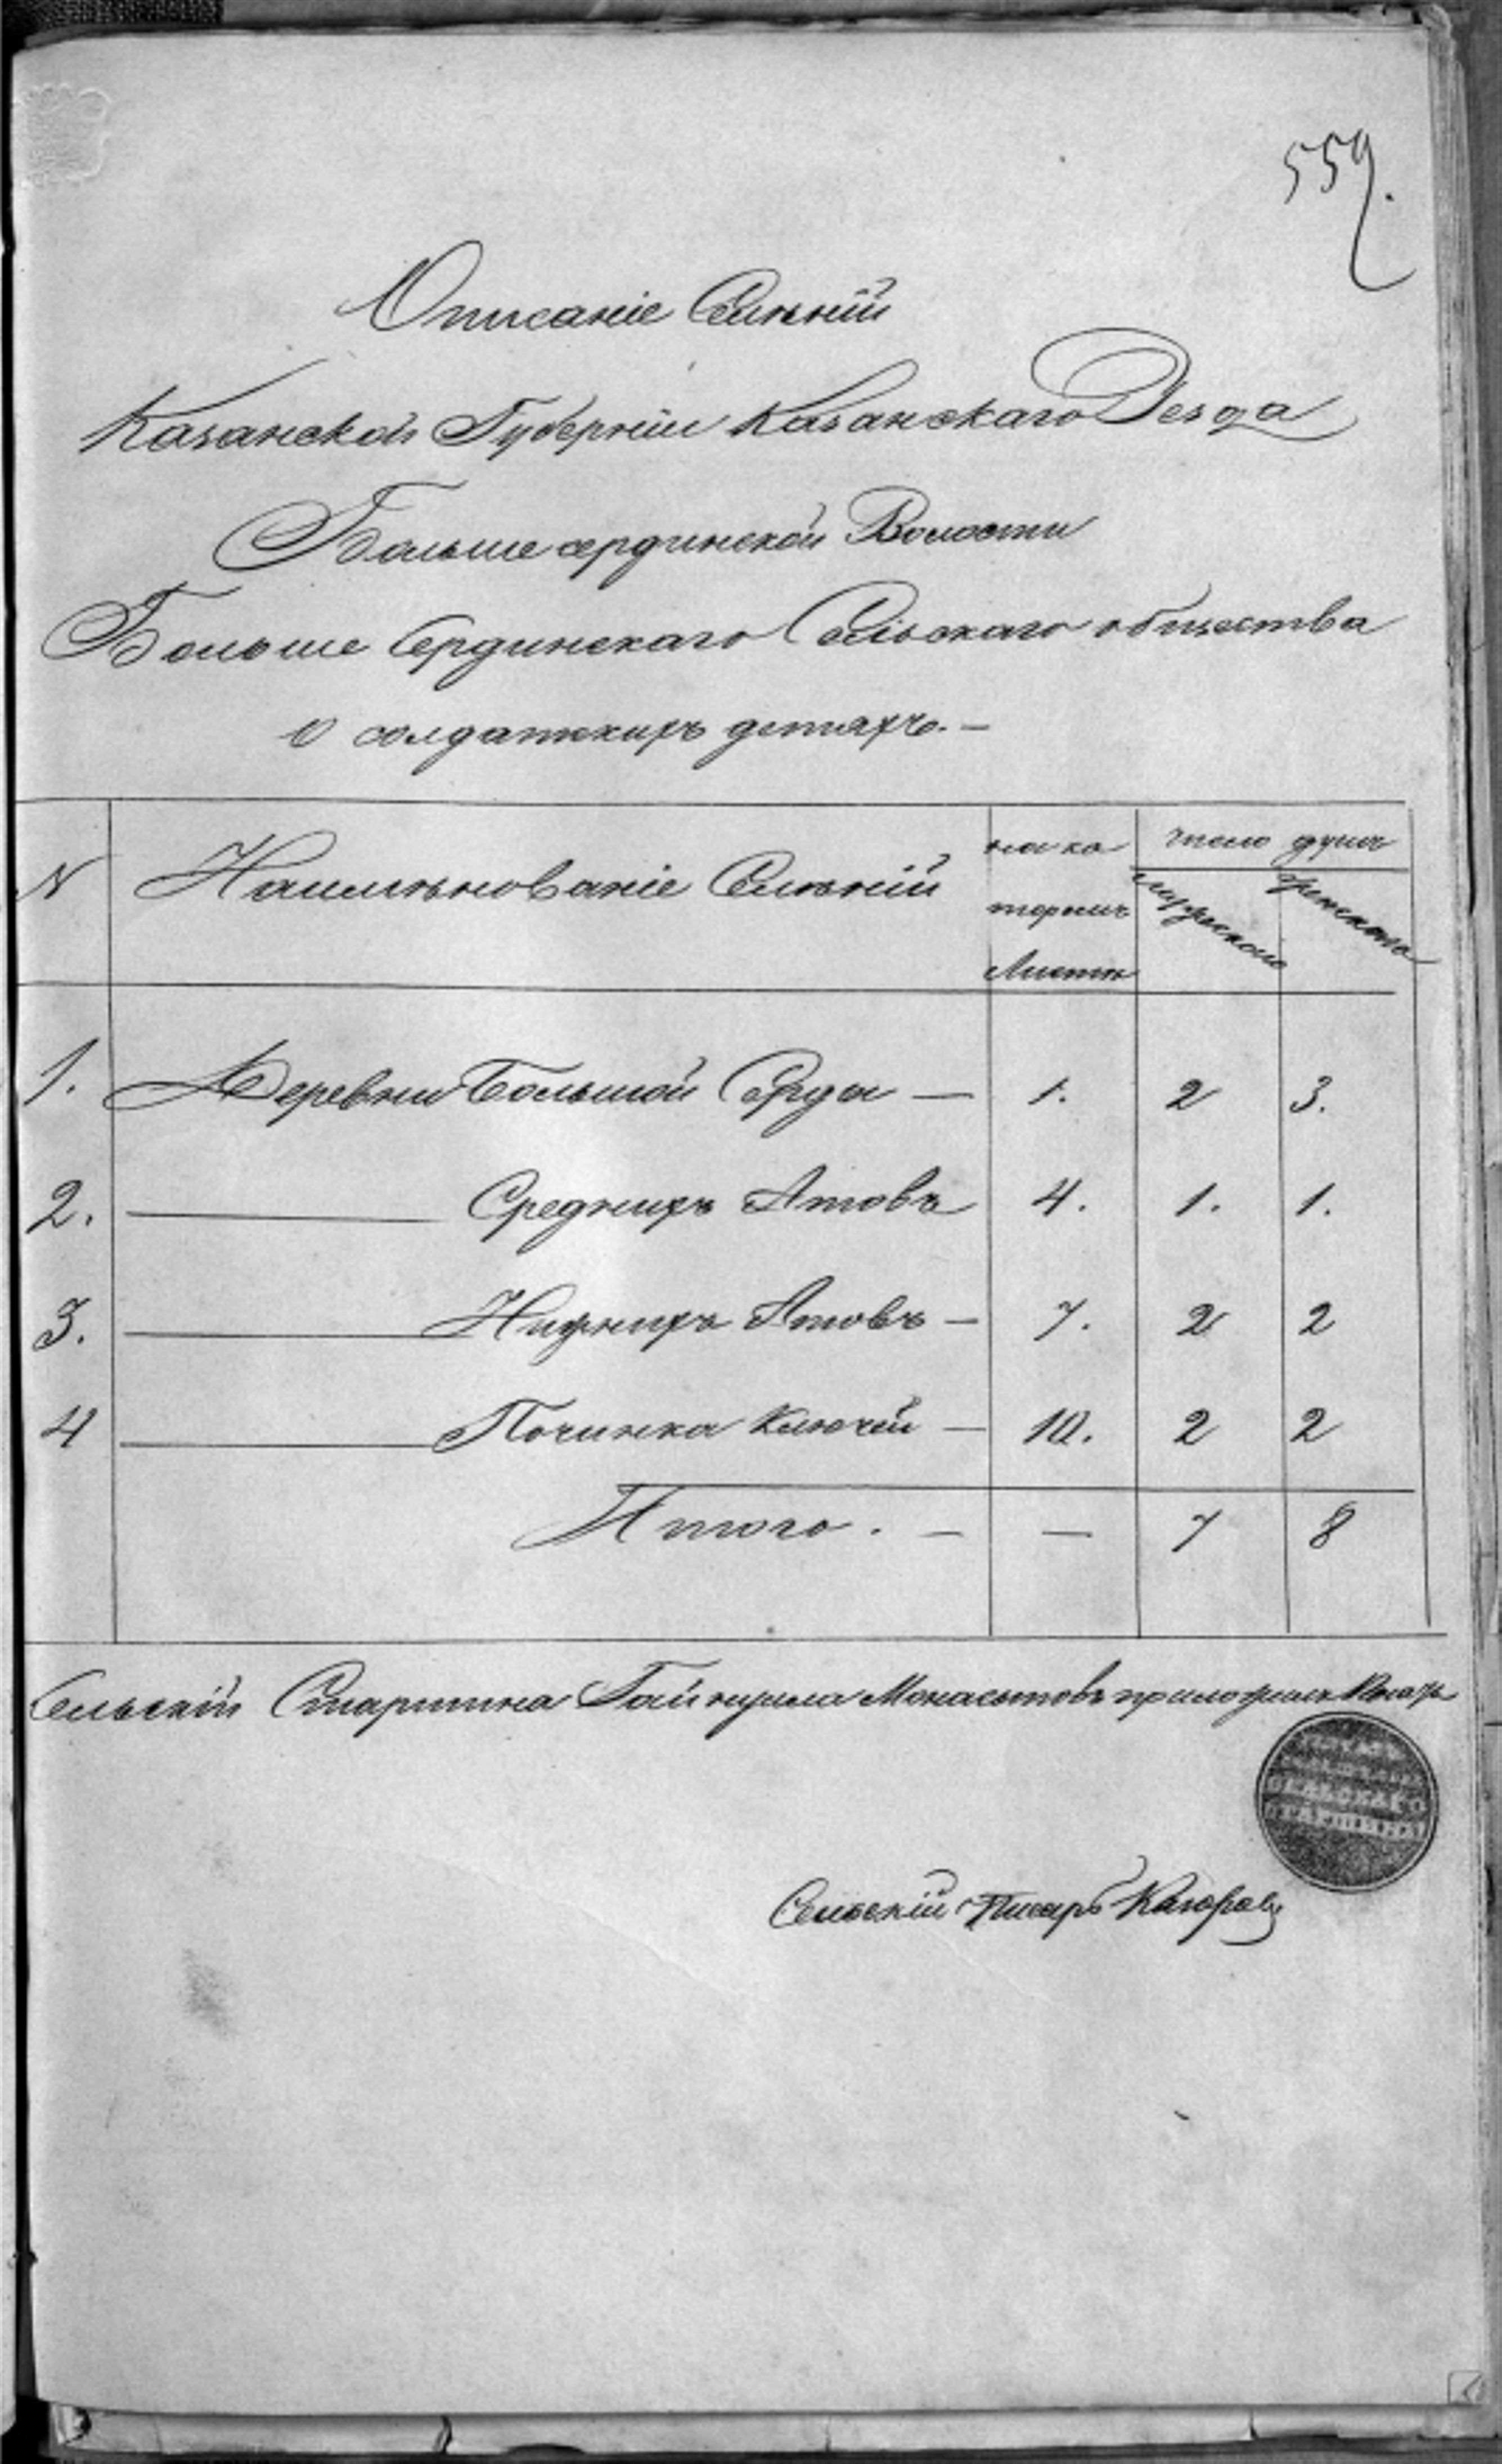 559.
Описаніе Селѣній
Казанской Губерніи Казанскаго Уезда
Больше сердинской Волости
Больше Сердинскаго Сельскаго общества
О солдатскихъ детяхъ. —
N Наимѣнованіе Селѣній на ко число душъ
торомъ мужескаго женскаго
Листѣ
1. Деревни Большой Серды — 1. 2 3.
2. Среднихъ Атовъ 4. 1. 1.
3. Нижнихъ Атовъ — 7. 2 2
4 Починка Ключей — 10. 2 2
Итого. — — 7 8
Сельскій Старшина приложилъ
СЕЛЬСКАГО
СТАРШИНЫ
Сельскій Писарь